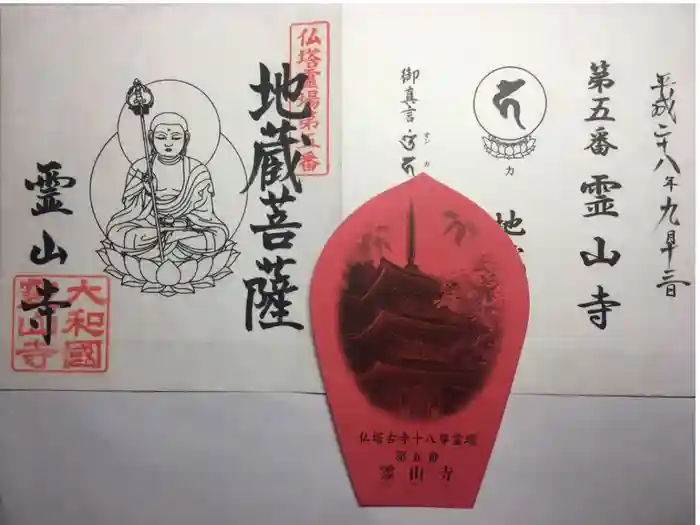 平成二十八年九月十三日
第五番 霊山寺
カ
地
御真言
オン カ
仏塔霊場第五番
地蔵菩薩
霊山寺
大和國
霊山寺
仏塔古寺十八尊霊場
第五番
霊山寺